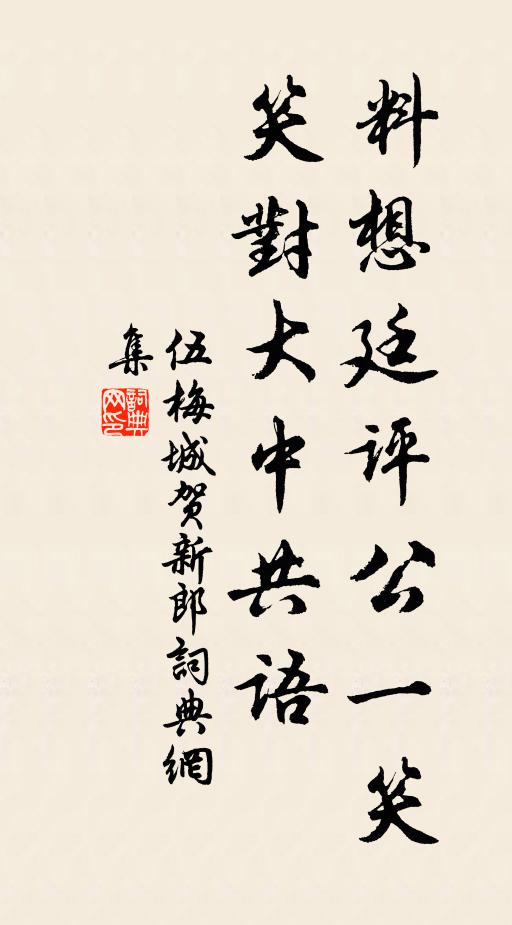 料想廷评公一笑
笑對大中共語
伍梅城贺新郎詞典網
集
詞典网印